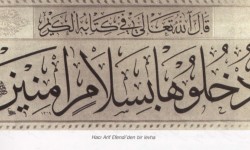 قال الله تعالى فى كتابه الكريم
ادخلوها بسلام آمنين
Hacı Arif Efendi'den bir levha